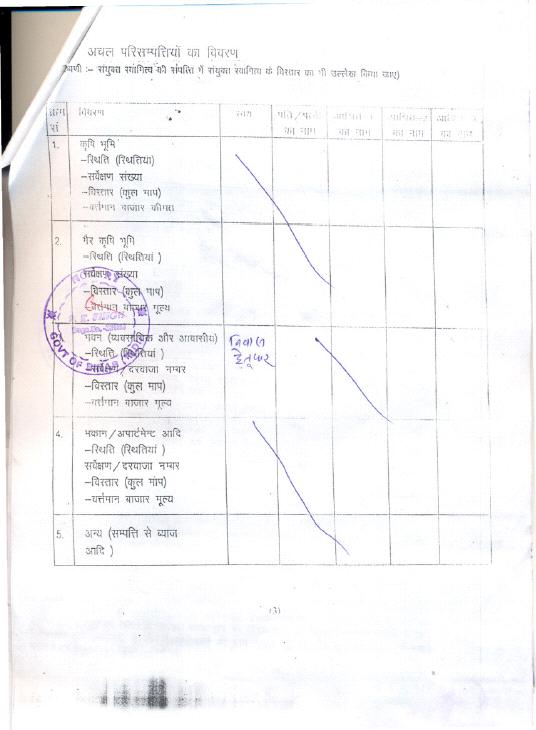 अचल परिसम्पत्तियों का विवरण
:- संयुक्त स्वामित्व की संपत्ति में संयुक्त स्वामित्व के विस्तार का भी उल्लेख किया जाए)
क्रम सं
विवरण
स्वयं
का नाम
का नाम
का नाम
का नाम
1.
कृषि भूमि
–स्थिति (स्थितियां)
–सर्वेक्षण संख्या
–विस्तार (कुल माप)
–वर्त्तमान बाजार कीमत
2.
गैर कृषि भूमि
–स्थिति (स्थितियां )
सर्वेक्षण संख्या
–विस्तार (कुल माप)
–वर्त्तमान बाजार मूल्य
भवन (व्यवसायिक और आवासीय)
–स्थिति (स्थितियां )
सर्वेक्षण/दरवाजा नम्बर
–विस्तार (कुल माप)
–वर्त्तमान बाजार मूल्य
निवास
हेतु घर
4.
मकान/अपार्टमेन्ट आदि
–स्थिति (स्थितियां )
सर्वेक्षण/दरवाजा नम्बर
–विस्तार (कुल माप)
–वर्त्तमान बाजार मूल्य
5.
अन्य (सम्पत्ति से ब्याज
आदि )
NOTARY
GOVT OF
(3)